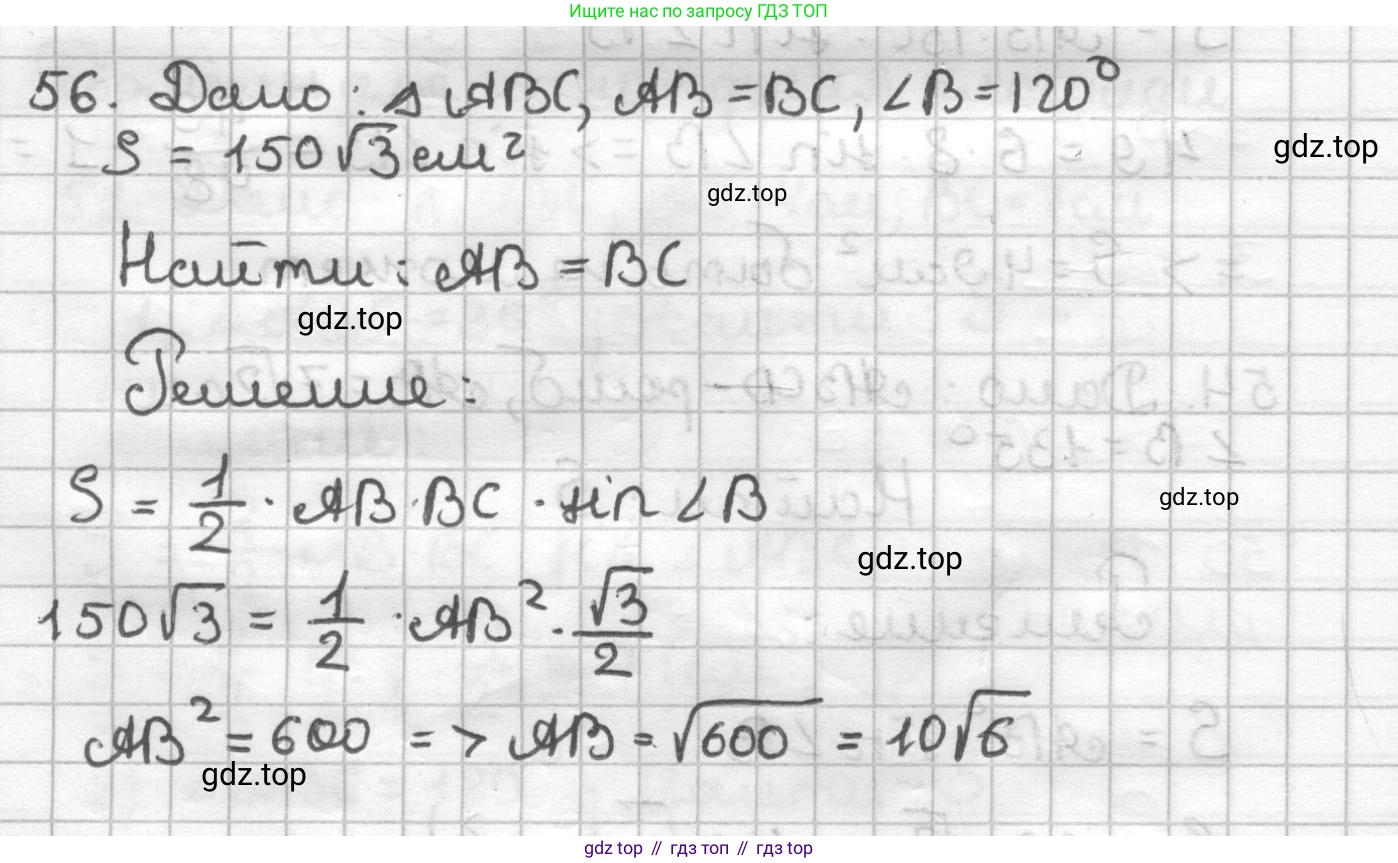 Ищите нас по запросу ГДЗ ТОП
56. Дано: △ ABC, AB = BC, ∠B = 120°
S = 150√3 см²
gdz.top
gdz.top
Найти: AB = BC
gdz.top
Решение:
S = 1/2 · AB · BC · sin ∠B
gdz.top
gdz.top
150√3 = 1/2 · AB² · √3/2
AB² = 600 => AB = √600 = 10√6
gdz.top
gdz top // гдз топ // gdz top